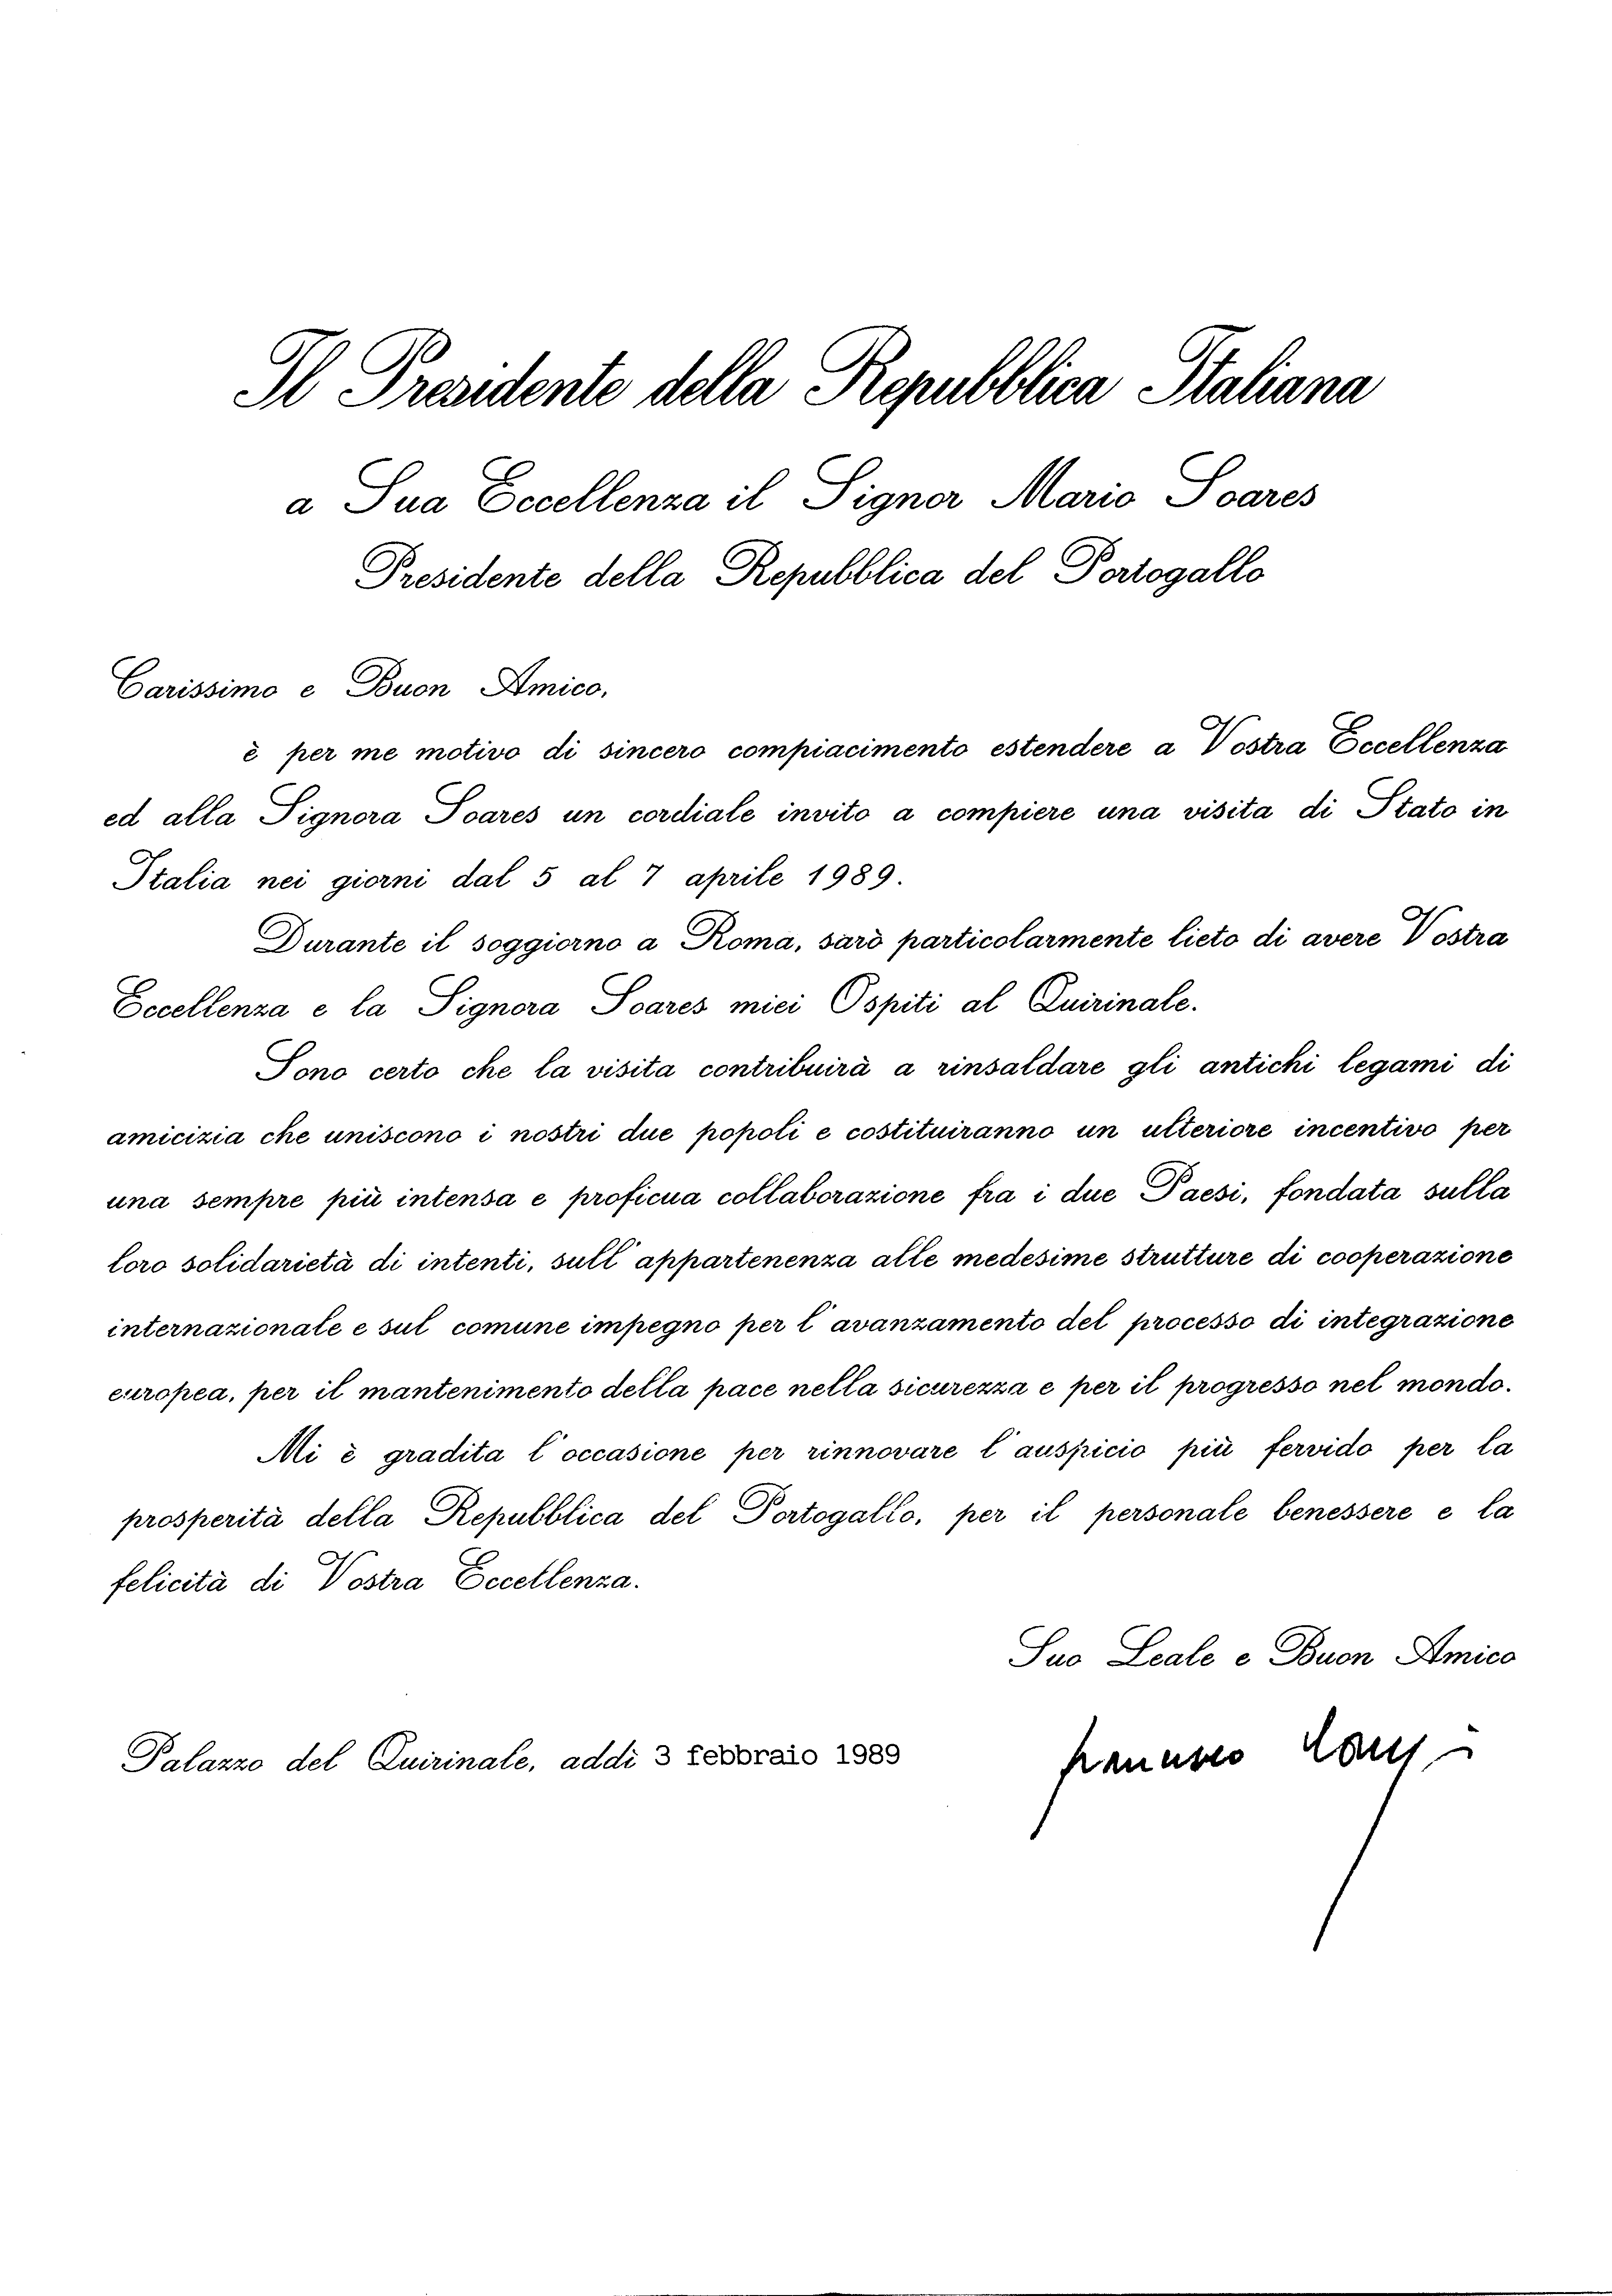 Il Presidente della Repubblica Italiana
a Sua Eccellenza il Signor Mario Soares
Presidente della Repubblica del Portogallo
Carissimo e Buon Amico,
è per me motivo di sincero compiacimento estendere a Vostra Eccellenza
ed alla Signora Soares un cordiale invito a compiere una visita di Stato in
Italia nei giorni dal 5 al 7 aprile 1989.
Durante il soggiorno a Roma, sarò particolarmente lieto di avere Vostra
Eccellenza e la Signora Soares miei Ospiti al Quirinale.
Sono certo che la visita contribuirà a rinsaldare gli antichi legami di
amicizia che uniscono i nostri due popoli e costituiranno un ulteriore incentivo per
una sempre più intensa e proficua collaborazione fra i due Paesi, fondata sulla
loro solidarietà di intenti, sull'appartenenza alle medesime strutture di cooperazione
internazionale e sul comune impegno per l'avanzamento del processo di integrazione
europea, per il mantenimento della pace nella sicurezza e per il progresso nel mondo.
Mi è gradita l'occasione per rinnovare l'auspicio più fervido per la
prosperità della Repubblica del Portogallo, per il personale benessere e la
felicità di Vostra Eccellenza.
Suo Leale e Buon Amico
Palazzo del Quirinale, addì 3 febbraio 1989
Francesco Cossiga